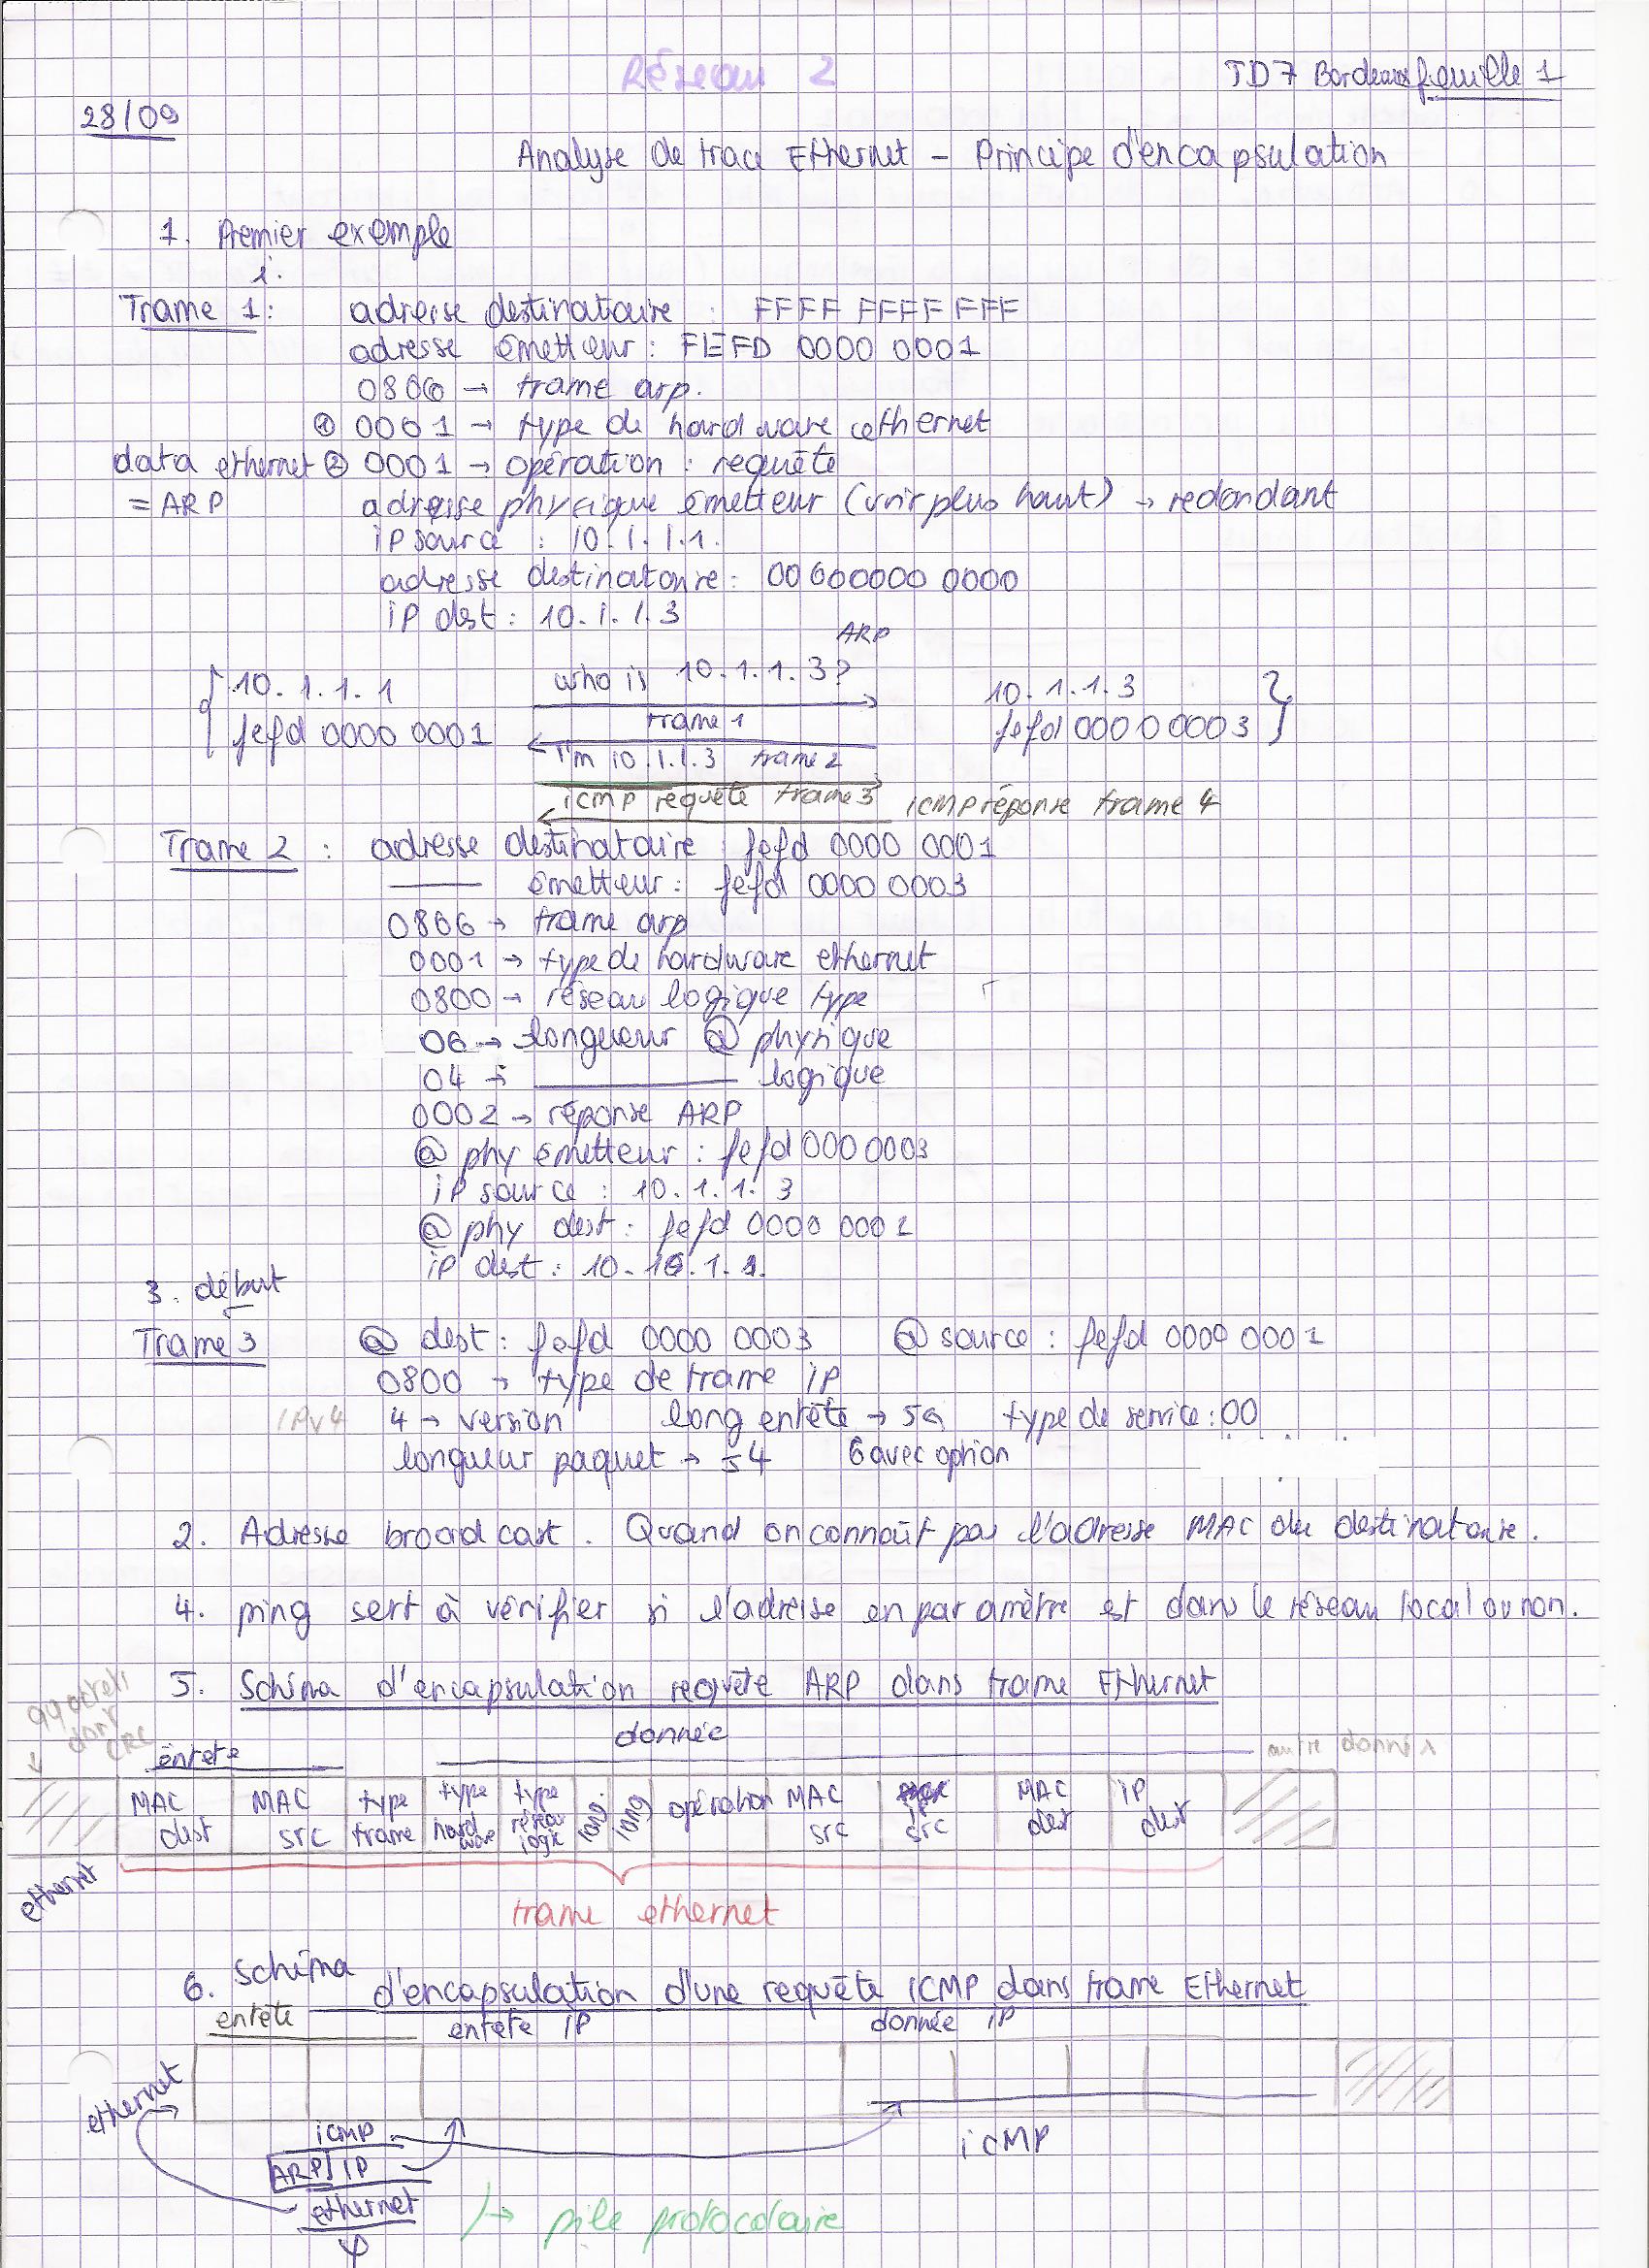 Réseau 2
TD7 Bordeaux feuille 1
28/09
Analyse de trace Ethernet - Principe d'encapsulation
1. Premier exemple
1.
Trame 1: adresse destinataire : FFFF FFFF FFF
adresse émetteur : FEFD 0000 0001
0806 → trame arp.
① 0001 → type de hardware ethernet
data ethernet ② 0001 → opération : requête
= ARP adresse physique émetteur (voir plus haut) → redondant
ip source : 10.1.1.1.
adresse destinataire : 00000000 0000
ip dest : 10.1.1.3
ARP
10.1.1.1 who is 10.1.1.3? 10.1.1.3
fefd 0000 0001 trame 1 fefd 0000 0003
I'm 10.1.1.3 trame 2
icmp requête trame 3 icmp réponse trame 4
Trame 2 : adresse destinataire : fefd 0000 0001
émetteur : fefd 0000 0003
0806 → trame arp
0001 → type de hardware ethernet
0800 → réseau logique type
06 → longueur @ physique
04 → logique
0002 → réponse ARP
@ phy émetteur : fefd 000 0003
ip source : 10.1.1.3
@ phy dest : fefd 0000 0001
ip dest : 10.10.1.1.
3. début
Trame 3 @ dest : fefd 0000 0003 @ source : fefd 0000 0001
0800 → type de trame ip
IPv4 4 → version long entête → 5 type de service : 00
longueur paquet → 54 6 avec option
2. Adresse broadcast. Quand on connaît pas l'adresse MAC du destinataire.
4. ping sert à vérifier si l'adresse en paramètre est dans le réseau local ou non.
5. Schéma d'encapsulation requête ARP dans trame Ethernet
dont
CRC
entete donnée autre donnée
MAC dest MAC src type trame type hardware type réseau logic long long opération MAC src ip src MAC dest IP dest
ethernet
trame ethernet
6. Schéma d'encapsulation d'une requête ICMP dans trame Ethernet
entete entete IP donnée IP
ethernet
icmp icMP
ARP IP
ethernet → pile protocolaire
φ